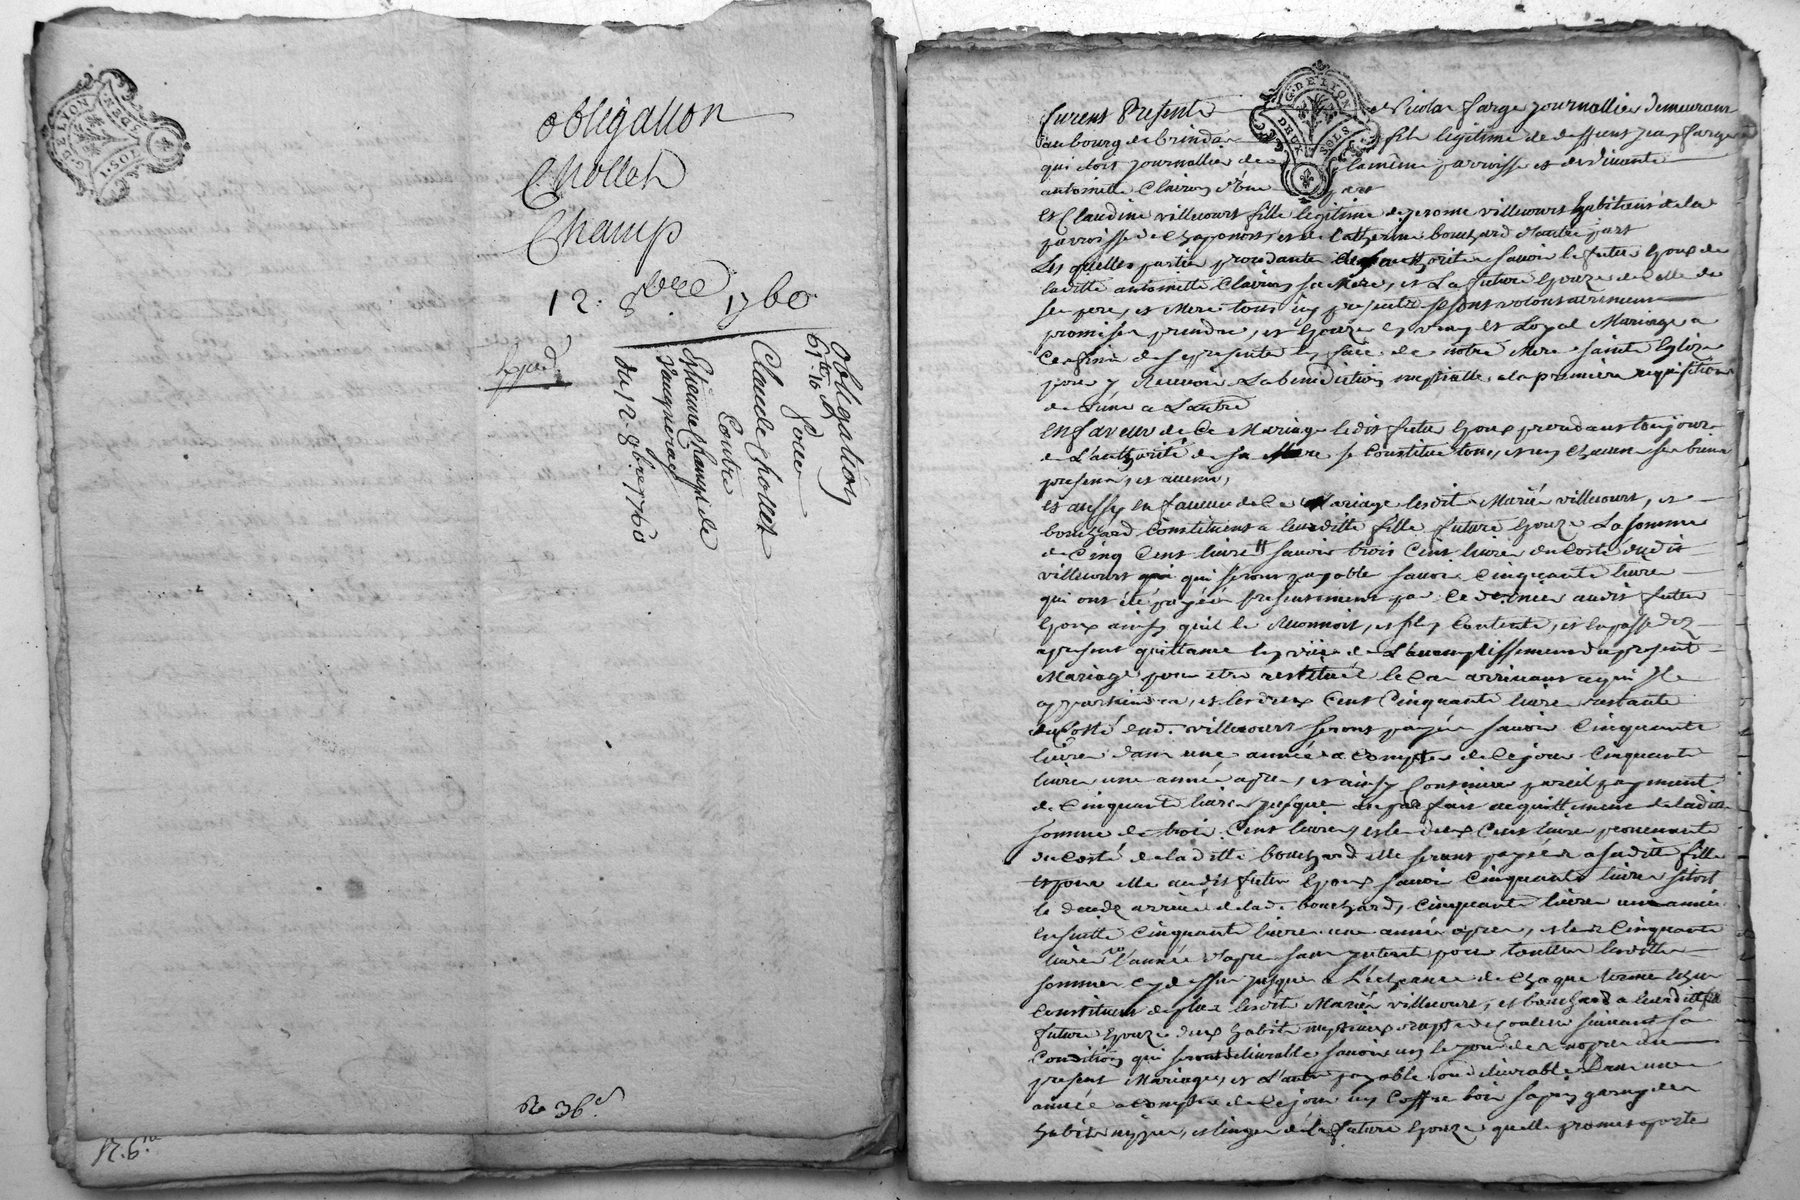 G. DE LYON
DEUX SOLS
obligation
Chollet
Champ
12. 8bre 1760
Exped.
obligation
61lt 10 s.
Pour
Claude Chollet
Contre
Estienne Champ de
Vaugneray
du 12. 8bre 1760
Re 36 s
G. DE LYON
DEUX SOLS
furent Presents Nicolas farge journallier demeurant
au bourg de brindas fils legitime de deffunt jean farge
qui etoit journallier de la même parroisse et de vivante
antoinette Clairon d'une part
et Claudine villecourt fille legitime de jerome villecourt habitant de la
parroisse de Chaponost, et de Catherine bouchard d'autre part
Les quelles parties procedantes de l'authorité savoir le futur Epoux de
laditte antoinette Clairon sa Mere, et La future Epouze de celle de
ses pere, et Mere tous icy presents se sont volontairement
promis se prendre, et Epouzer en vray et Loyal Mariage a
Ces fins de se presenter en face de notre Mere sainte Eglize
pour y Recevoir La benediction nuptialle a la premiere requisition
de L'une a L'autre
En faveur de Ce Mariage ledit futur Epoux procedant toujours
de L'authorité de sa Mere se Constitue tous, et un chacun ses biens
presens, et avenir,
et aussy en faveur de Ce Mariage lesdits Mariés villecourt, et
bouchard Constituent a leurditte fille future Epouze La somme
de Cinq Cent livres savoir trois Cent livres du Costé dudit
villecourt qui seront payable savoir Cinquante livres
qui ont été payées presentement par Ce dernier audit futur
Epoux ainsy quil le Reconnoit, et s'en Contente, et en passe dez
apresent quittance en vüe de L'accomplissement du present
Mariage pour etre restitué le Cas arrivant a qui Il
appartiendra, et les deux Cent Cinquante livres restante
du Costé dud. villecourt seront payées savoir Cinquante
livres dans une année a Compter de Ce jour Cinquante
livres une année apres, et ainsy Continuer pareil payement
de Cinquante livres jusques au parfait acquittement de ladite
somme de trois Cent livres, et les deux Cent livres provenante
du Costé de laditte bouchard elle seront payées a saditte fille
et pour elle audit futur Epoux savoir Cinquante livres sitost
le deceds arrivé de lad. bouchard, Cinquante livres une année
Ensuitte Cinquante livres une année apres, et les Cinquante
livres l'année d'apres sans interest pour touttes lesdittes
sommes cy dessus jusques a L'écheance de Chaque terme
Constituent de plus lesdits Mariés villecourt, et bouchard a leurditte fille
future Epouze deux habits nuptiaux drapt de Couleur suivant sa
Condition qui seront delivrable savoir un le jour des nopces du
present Mariage, et L'autre payable ou delivrable dans une
année a Compter de Ce jour un Coffre bois sapin garny des
habits nippes, et linges de la future Epouze quelle promet aporter